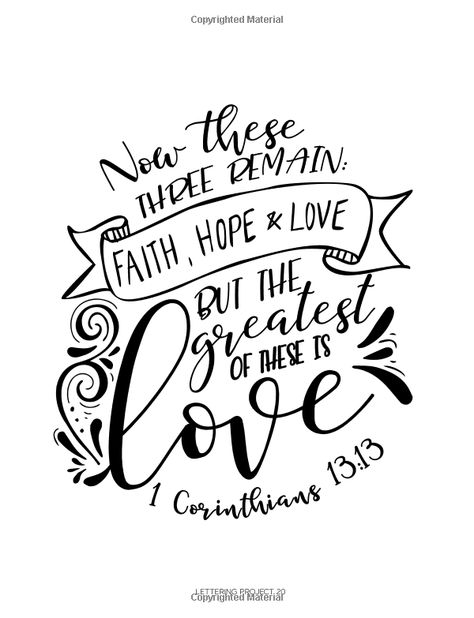 Copyrighted Material
Now these
THREE REMAIN:
FAITH, HOPE & LOVE
BUT THE
greatest
OF THESE IS
love
1 Corinthians 13:13
LETTERING PROJECT, 20
Copyrighted Material